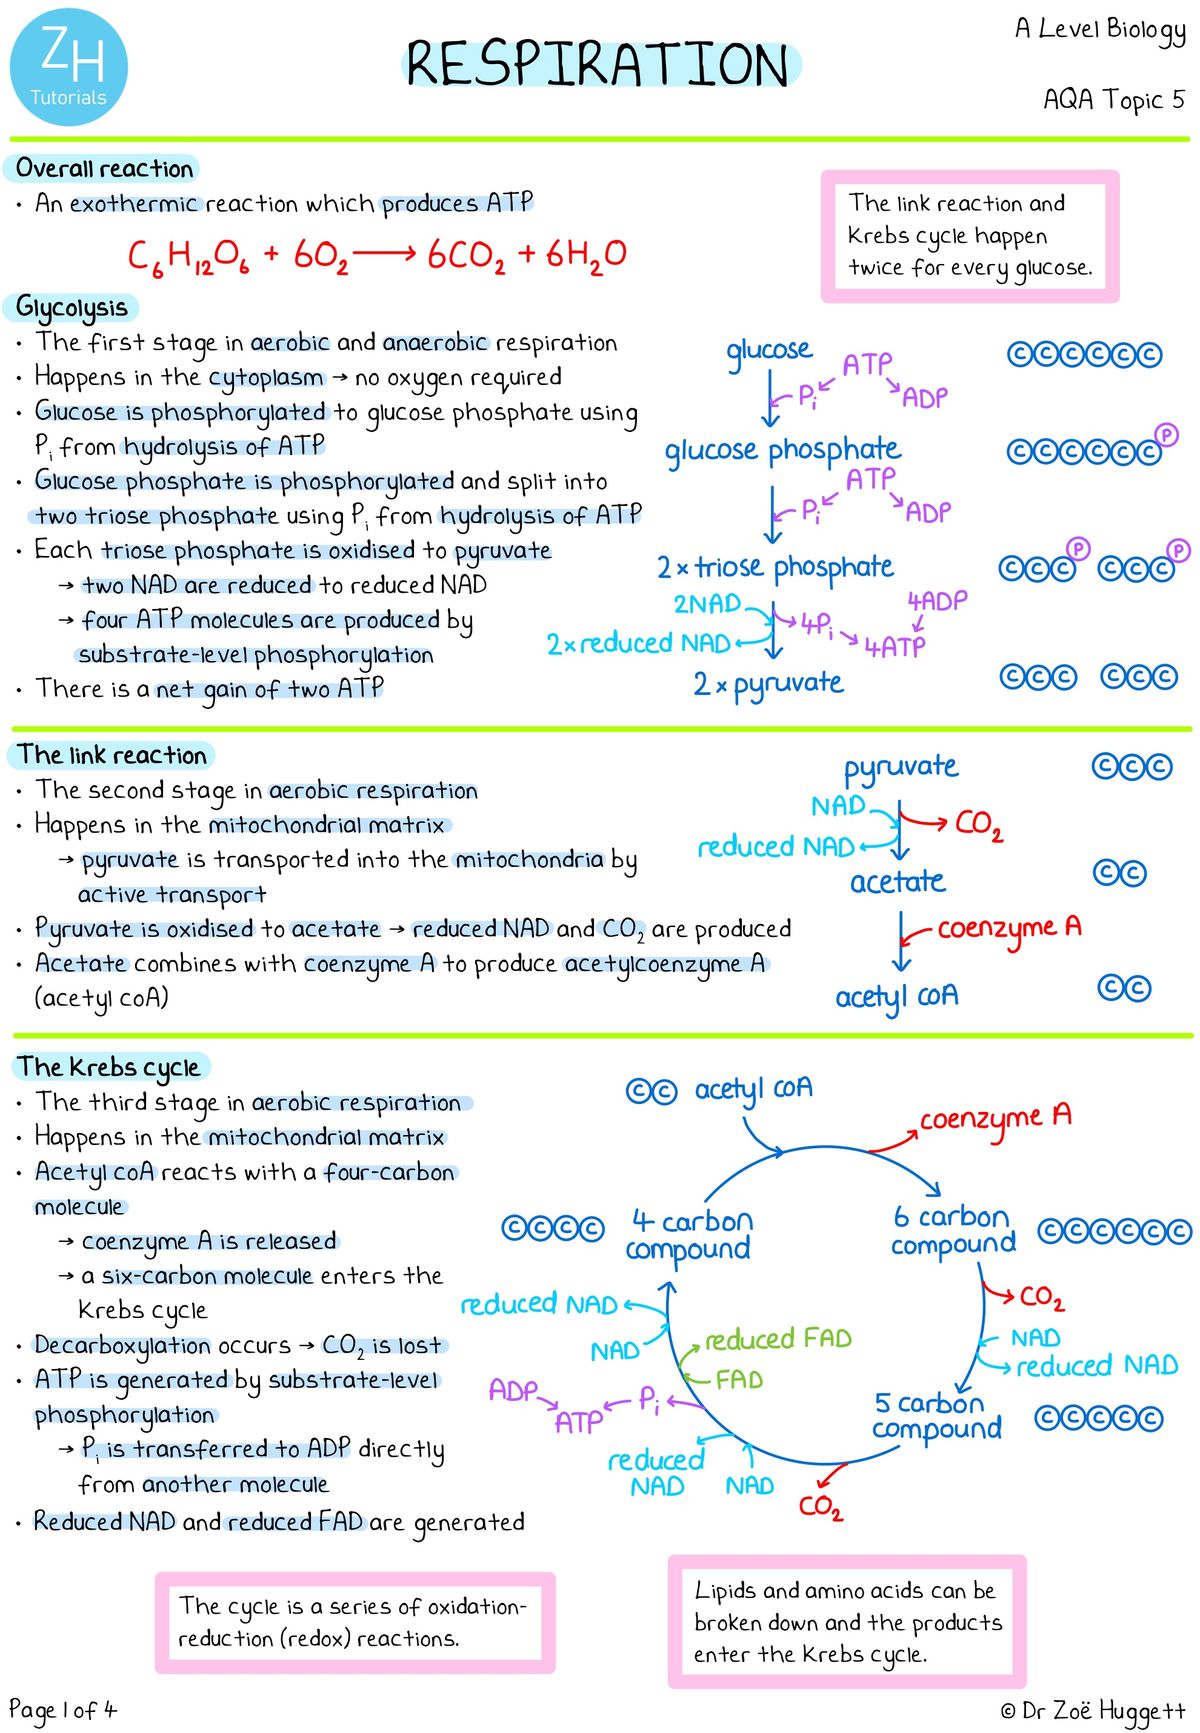 ZH
Tutorials
RESPIRATION
A Level Biology
AQA Topic 5
Overall reaction
• An exothermic reaction which produces ATP
C₆H₁₂O₆ + 6O₂ → 6CO₂ + 6H₂O
The link reaction and
Krebs cycle happen
twice for every glucose.
Glycolysis
• The first stage in aerobic and anaerobic respiration
• Happens in the cytoplasm → no oxygen required
• Glucose is phosphorylated to glucose phosphate using
Pᵢ from hydrolysis of ATP
• Glucose phosphate is phosphorylated and split into
two triose phosphate using Pᵢ from hydrolysis of ATP
• Each triose phosphate is oxidised to pyruvate
→ two NAD are reduced to reduced NAD
→ four ATP molecules are produced by
substrate-level phosphorylation
• There is a net gain of two ATP
glucose
C C C C C C
ATP
Pᵢ
ADP
glucose phosphate
C C C C C C P
ATP
Pᵢ
ADP
2 × triose phosphate
C C C P C C C P
2NAD
4ADP
4Pᵢ
2 × reduced NAD
4ATP
2 × pyruvate
C C C C C C
The link reaction
• The second stage in aerobic respiration
• Happens in the mitochondrial matrix
→ pyruvate is transported into the mitochondria by
active transport
• Pyruvate is oxidised to acetate → reduced NAD and CO₂ are produced
• Acetate combines with coenzyme A to produce acetylcoenzyme A
(acetyl coA)
pyruvate
C C C
NAD
CO₂
reduced NAD
acetate
C C
coenzyme A
acetyl coA
C C
The Krebs cycle
• The third stage in aerobic respiration
• Happens in the mitochondrial matrix
• Acetyl coA reacts with a four-carbon
molecule
→ coenzyme A is released
→ a six-carbon molecule enters the
Krebs cycle
• Decarboxylation occurs → CO₂ is lost
• ATP is generated by substrate-level
phosphorylation
→ Pᵢ is transferred to ADP directly
from another molecule
• Reduced NAD and reduced FAD are generated
C C acetyl coA
coenzyme A
C C C C 4 carbon
compound
6 carbon
compound
C C C C C C
CO₂
NAD
reduced NAD
5 carbon
compound
C C C C C
CO₂
NAD
reduced
NAD
Pᵢ
ADP
ATP
FAD
reduced FAD
NAD
reduced NAD
The cycle is a series of oxidation-
reduction (redox) reactions.
Lipids and amino acids can be
broken down and the products
enter the Krebs cycle.
Page 1 of 4
© Dr Zoë Huggett